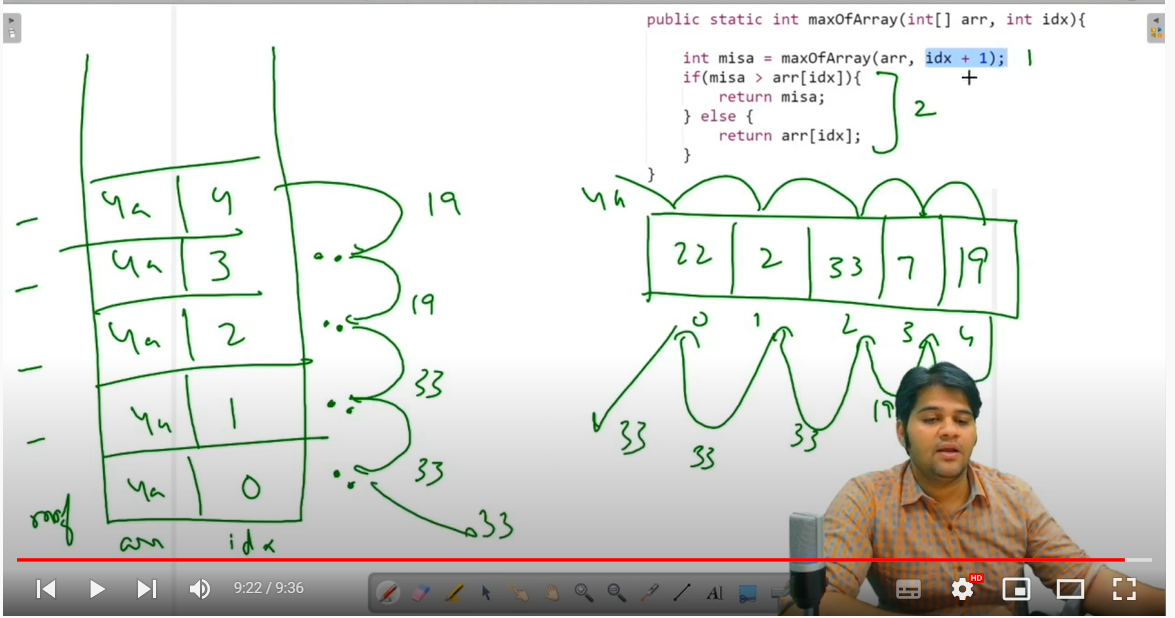 public static int maxOfArray(int[] arr, int idx){
int misa = maxOfArray(arr, idx + 1); 1
if(misa > arr[idx]){
return misa;
} else {
return arr[idx];
}
}
2
4a 4 19
4a 3 19
4a 2 33
4a 1 33
4a 0 33
arr idx
4a
22 2 33 7 19
0 1 2 3 4
33 33 33 19
9:22 / 9:36
HD
A